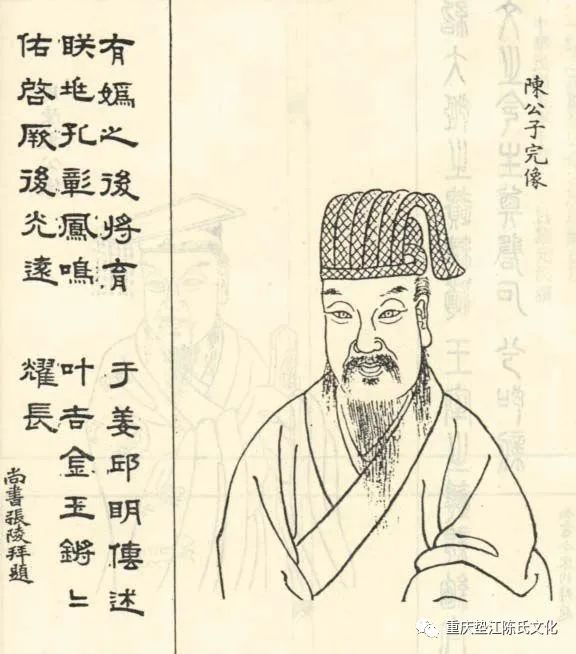 陳公子完像
有嬀之後將育　于姜邱明傳述
眹垗孔彰鳳鳴　叶吉金玉鏘〻
佑啓厥後光遠　耀長
尚書張陵拜題
重庆垫江陈氏文化